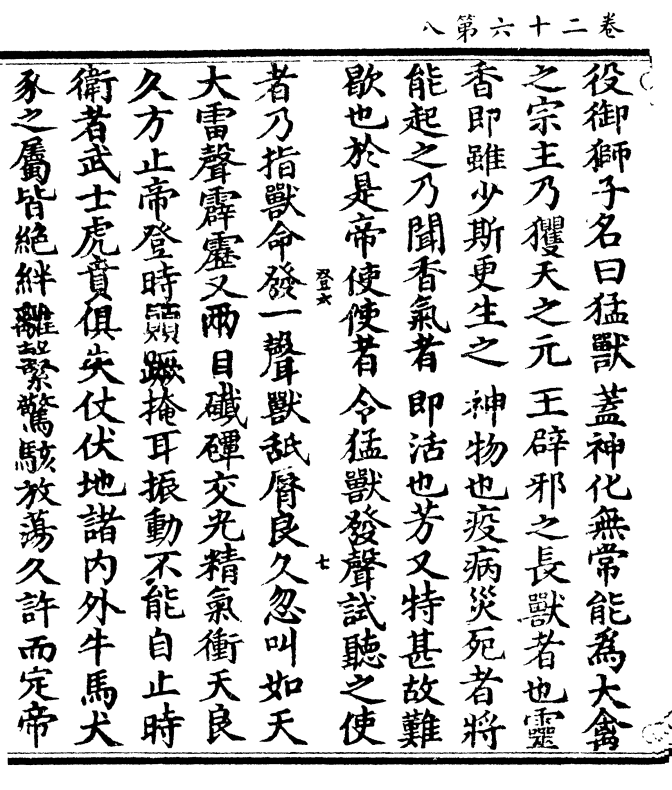 卷二十六第八
役御獅子名曰猛獸蓋神化無常能爲大禽
之宗主乃玃天之元王辟邪之長獸者也靈
香即雖少斯更生之神物也疫病災死者將
能起之乃聞香氣者即活也芳又特甚故難
歇也於是帝使使者令猛獸發聲試聽之使
癸六
七
者乃指獸命發一聲獸舐脣良久忽叫如天
大雷聲霹靂又兩目礛磹交光精氣衝天良
久方止帝登時顛蹶掩耳振動不能自止時
衛者武士虎賁俱失仗伏地諸內外牛馬犬
豕之屬皆絕絆離繫驚駭放蕩久許而定帝